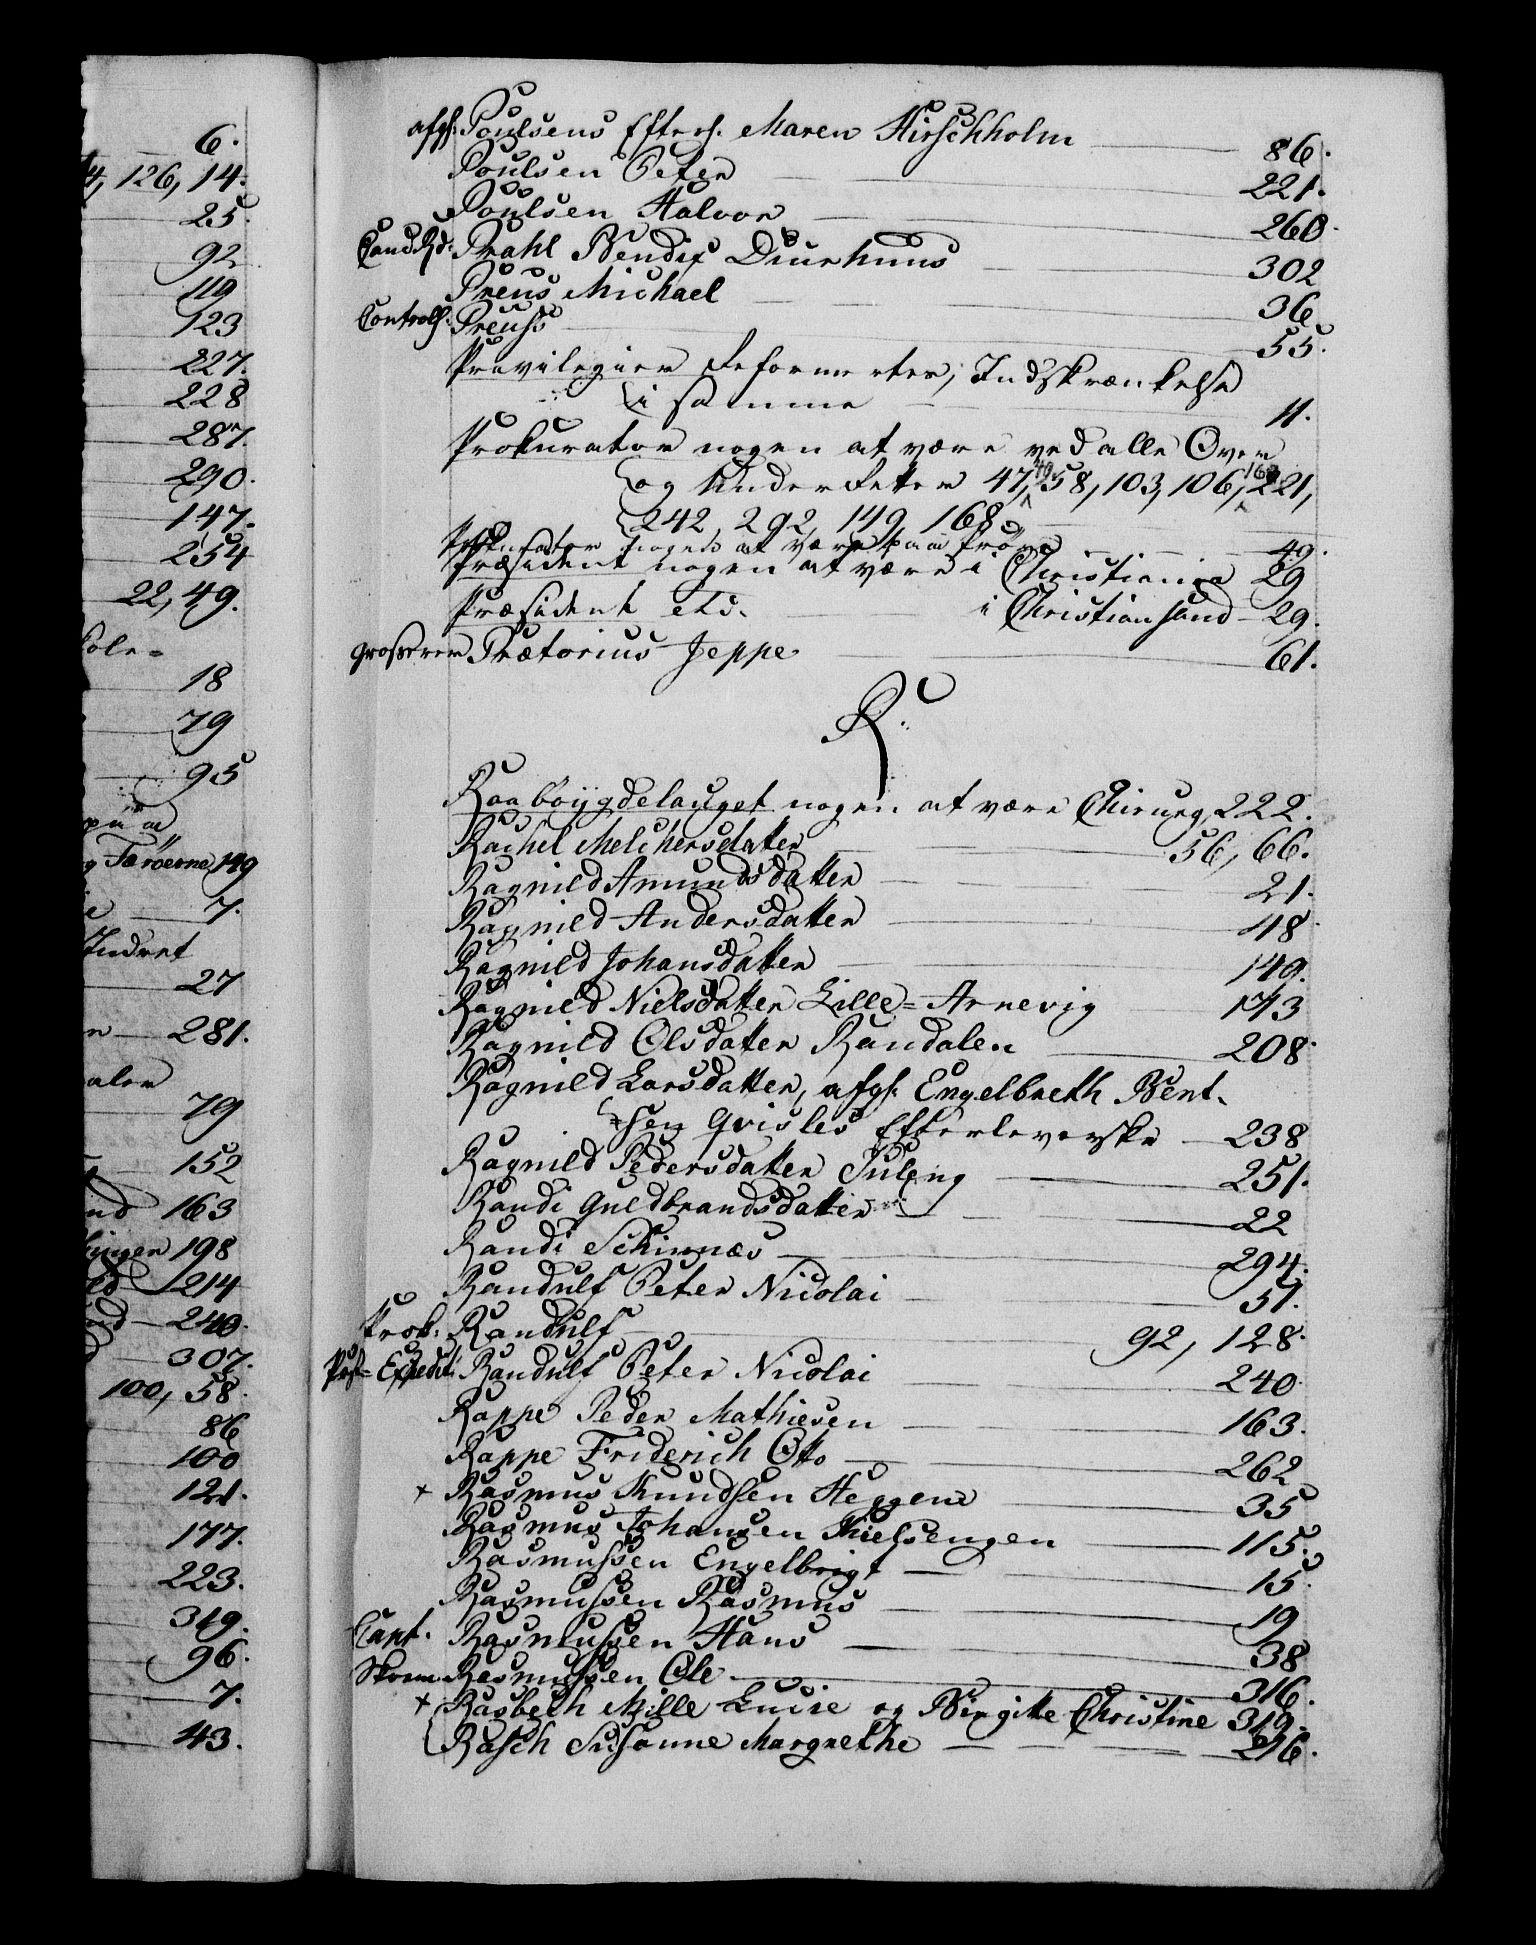 6.
4, 126, 14.
25.
92
119
123
227.
228
287.
290.
147.
254
22, 49.
18
79
95
paa
Færöerne 149
7.
Indret
27
281.
79
152
163
198
214
240.
307.
100, 58.
86
100
121.
177.
223.
319.
96.
7.
43.
afgl. Poulsens Efterl. Maren Hirschholm 86.
Poulsen Peter 221.
Poulsen Halvor 260.
Prahl Bendix Diurhuus 302
Preus Michael 36.
Controll: Preuss 55.
Privilegier Reformerter, Indskrænkelse
i samme 11.
Prokurator nogen at være ved alle Over
og Under Retter 47, 49, 58, 103, 106, 221,
242, 292, 149, 168
Prokurator nogen at være paa Prøve 49.
Præsident nogen at være i Christiania 29
Præsident i Christiansand 29.
Grosserer Prætorius Jeppe 61.
R.
Raabøygdelauget nogen at være Chirurg, 222.
Rachel Melchersdatter 56, 66.
Ragnild Amundsdatter 21.
Ragnild Andersdatter 48.
Ragnild Johansdatter 149.
Ragnild Nielsdatter Lille=Arnevig 173
Ragnild Olsdatter Randalen 208.
Ragnild Larsdatter, afgl. Engelbreth Bent-
=sen Qvisles Efterleverske 238
Ragnild Pedersdatter Juleng 251.
Randi Guldbrandsdatter 22
Randi Schirnæs 294.
Randulf Peter Nicolai 51.
Prok: Randulf 92, 128.
Post=Expedit: Randulf Peter Nicolai 240
Rappe Peder Mathiesen 163.
Rappe Friderich Otto 262
+ Rasmus Knudsen Heggene 35
Rasmus Johansen Kielsengen 115.
Rasmussen Engelbrigt 15.
Rasmussen Rasmus 19
Capt. Rasmussen Hans 38
Rasmussen Ole 316.
+ Rasbech Mille Lucie og Birgitte Christine 319.
Rasch Susanne Margrethe 216.